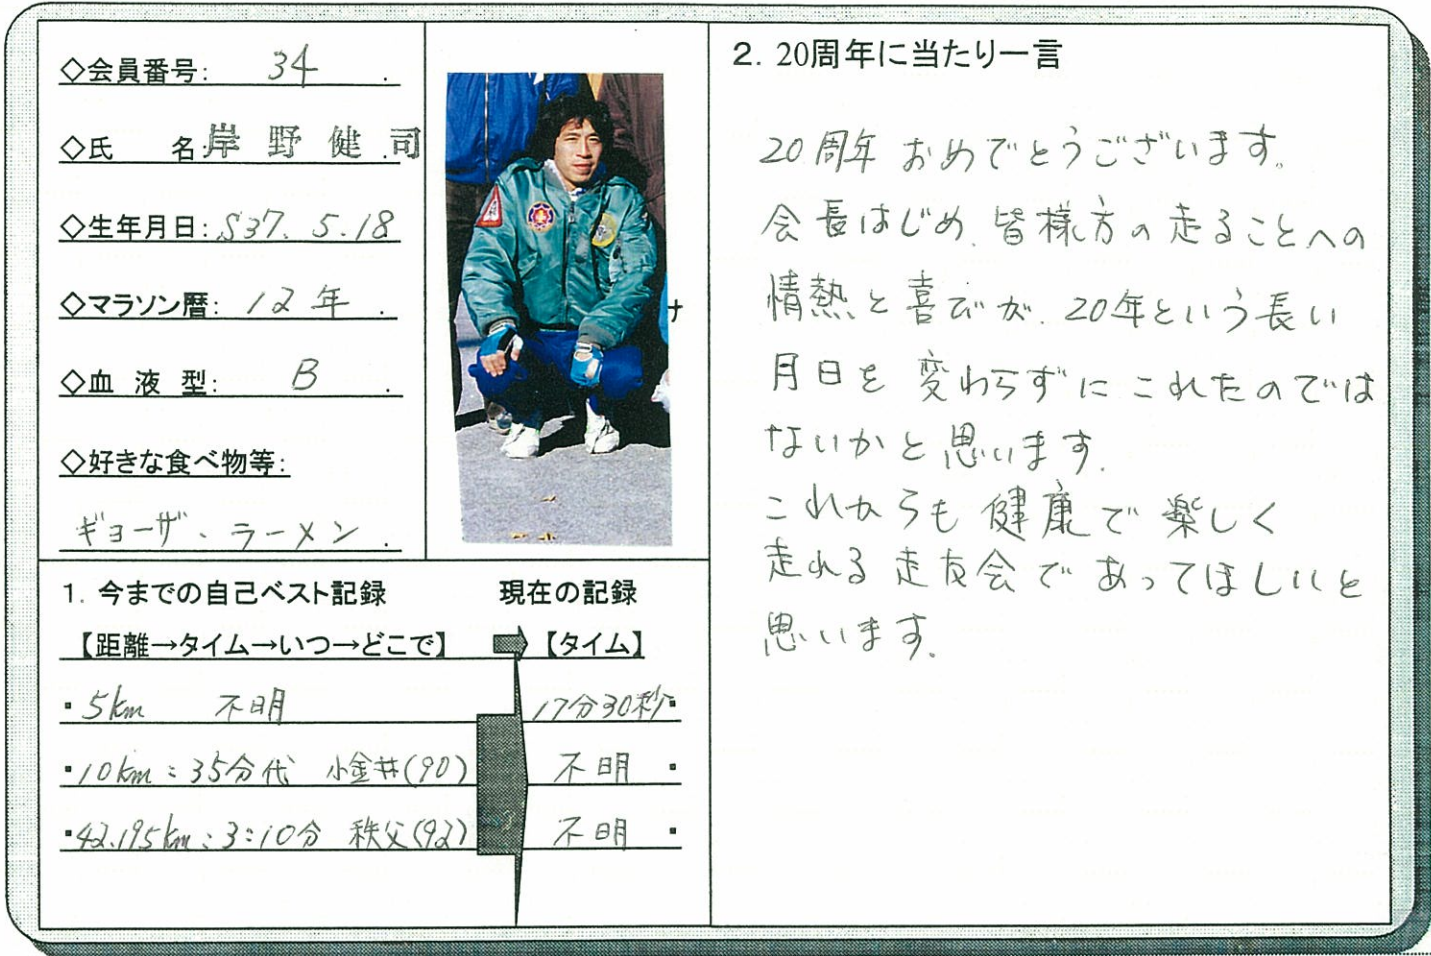 ◇会員番号: 34 .
◇氏 名: 岸野健司
◇生年月日: S37. 5.18
◇マラソン暦: 12年 .
◇血液型: B .
◇好きな食べ物等:
ギョーザ、ラーメン .
け
1. 今までの自己ベスト記録 現在の記録
【距離→タイム→いつ→どこで】 【タイム】
・5km 不明 17分30秒・
・10km:35分代 小金井(90) 不明・
・42.195km:3:10分 秩父(92) 不明・
2. 20周年に当たり一言
20周年おめでとうございます。
会長はじめ、皆様方の走ることへの
情熱と喜びが、20年という長い
月日を変わらずにこれたのでは
ないかと思います。
これからも健康で楽しく
走れる走友会であってほしいと
思います。